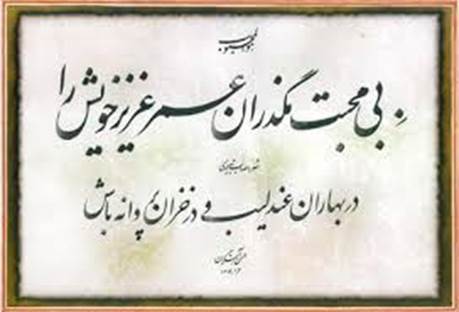 بی محبت مگذران عمر عزیز خویش را
صائب تبریزی
در بهاران عندلیب و در خزان پروانه باش